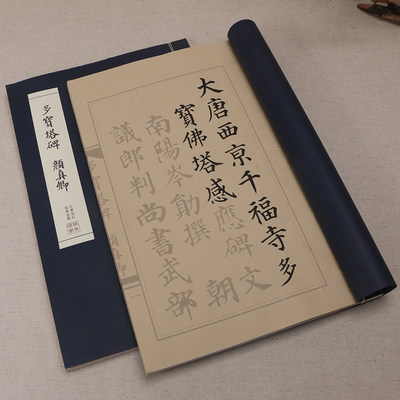 大唐西京千福寺多
寶佛塔感應碑文
南陽岑勛撰朝
議郎判尚書武部
多寶塔碑 顏真卿
多寶塔碑 顏真卿